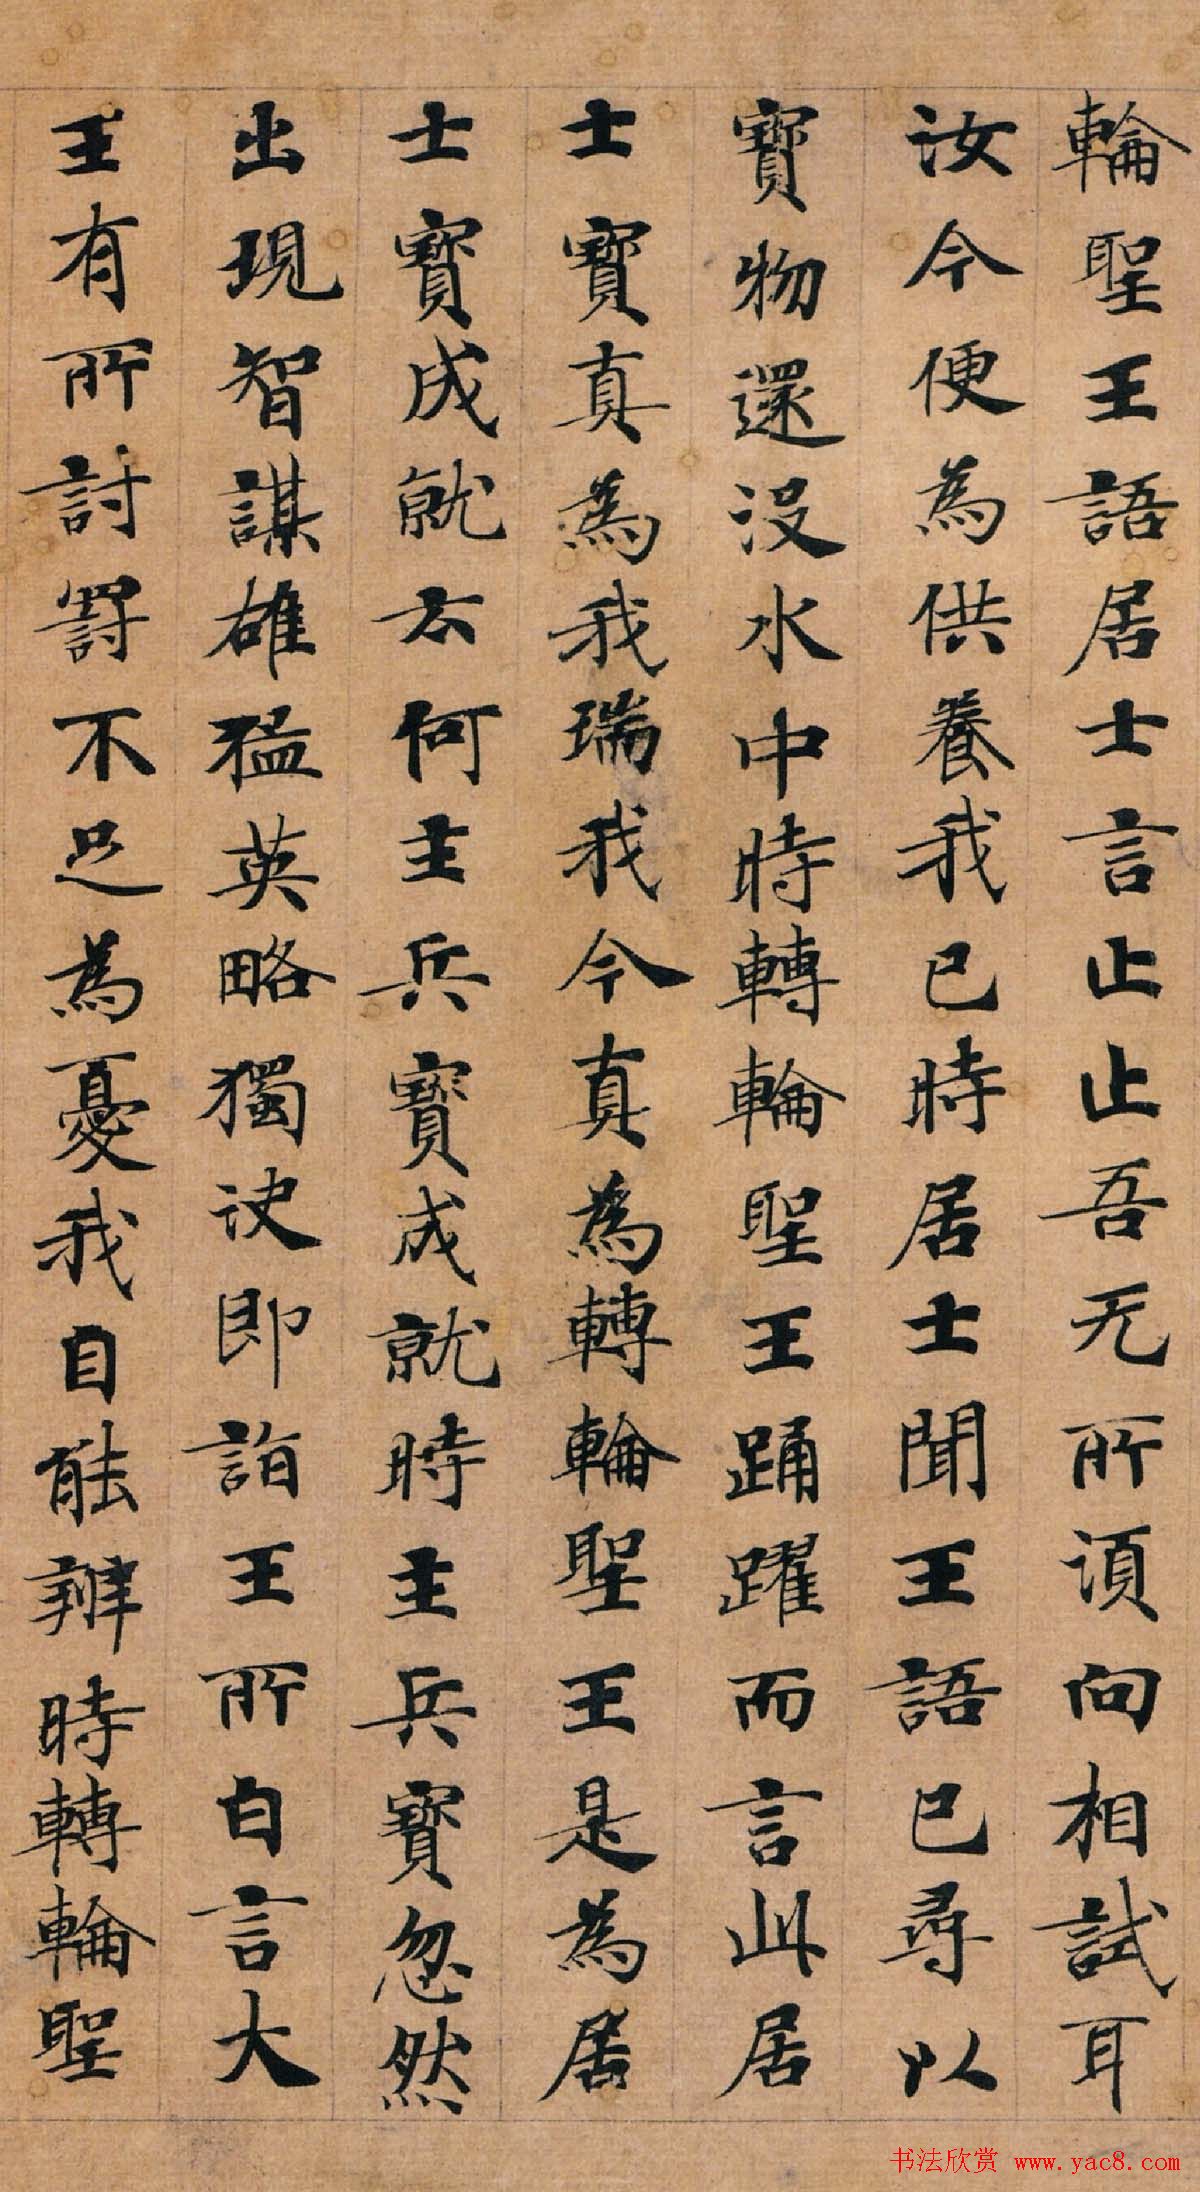 輪聖王語居士言止止吾无所湏向相試耳
汝今便為供養我已時居士聞王語已尋以
寶物還没水中時轉輪聖王踊躍而言此居
士寶真為我瑞我今真為轉輪聖王是為居
士寶成就云何主兵寶成就時主兵寶忽然
出現智謀雄猛英略獨决即詣王所白言大
王有所討罰不足為憂我自能辦時轉輪聖
书法欣赏 www.yac8.com